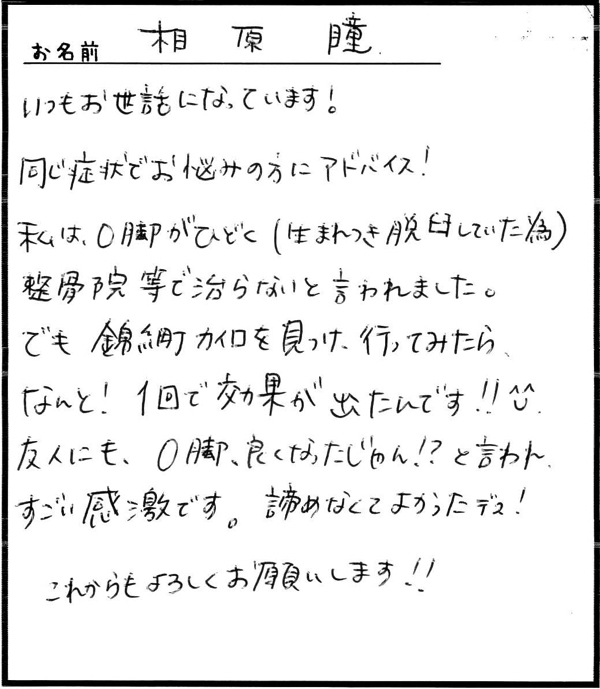 お名前 相原 瞳
いつもお世話になっています!
同じ症状でお悩みの方にアドバイス!
私は、O脚がひどく(生まれつき脱臼していた為)
整骨院等で治らないと言われました。
でも 錦綱町カイロを見つけ、行ってみたら、
なんと! 1回で効果が出たんです!!^^
友人にも、O脚、良くなったじゃん!?と言われ、
すごい感激です。諦めなくてよかったデス!
これからもよろしくお願いします!!